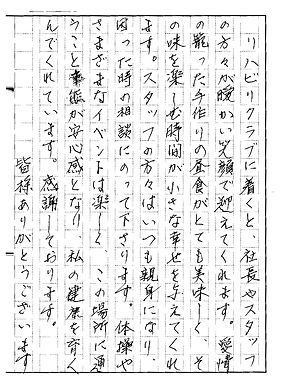 リハビリクラブに着くと、社長やスタッフ
の方々が暖かい笑顔で迎えてくれます。愛情
の籠った手作りの昼食がとても美味しく、そ
の味を楽しむ時間が小さな幸せを与えてくれ
ます。スタッフの方々はいつも親身になり、
困った時の相談にのって下さります。体操や
さまざまなイベントは楽しく、この場所に通
うこと自体が安心感となり、私の健康を育く
んでくれています。感謝しております。
皆様ありがとうございます